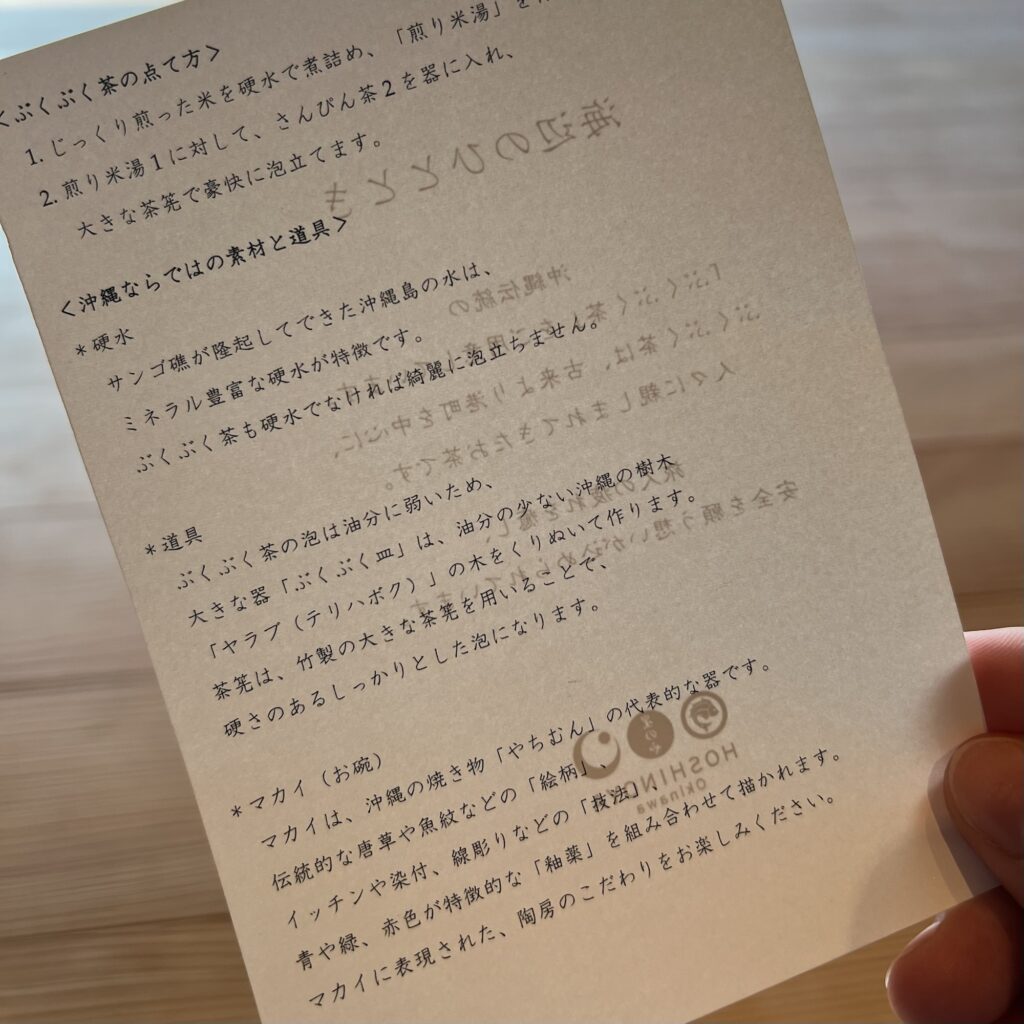 <ぶくぶく茶の点て方>
1. じっくり煎った米を硬水で煮詰め、「煎り米湯」を
2. 煎り米湯1に対して、さんぴん茶2を器に入れ、
大きな茶筅で豪快に泡立てます。
<沖縄ならではの素材と道具>
*硬水
サンゴ礁が隆起してできた沖縄島の水は、
ミネラル豊富な硬水が特徴です。
ぶくぶく茶も硬水でなければ綺麗に泡立ちません。
*道具
ぶくぶく茶の泡は油分に弱いため、
大きな器「ぶくぶく皿」は、油分の少ない沖縄の樹木
「ヤラブ(テリハボク)」の木をくりぬいて作ります。
茶筅は、竹製の大きな茶筅を用いることで、
硬さのあるしっかりとした泡になります。
*マカイ(お碗)
マカイは、沖縄の焼き物「やちむん」の代表的な器です。
伝統的な唐草や魚紋などの「絵柄」、
イッチンや染付、線彫りなどの「技法」、
青や緑、赤色が特徴的な「釉薬」を組み合わせて描かれます。
マカイに表現された、陶房のこだわりをお楽しみください。
海辺のひととき
沖縄伝統の
「ぶくぶく茶」をご用意しています。
ぶくぶく茶は、古来より港町を中心に、
人々に親しまれてきたお茶です。
旅人の疲れを癒し、
安全を願う想いが込められています。
HOSHINO
Okinawa